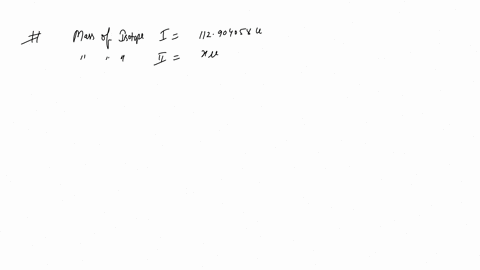 # Mass of Isotope I = 112.904058 u
" " " II = x u